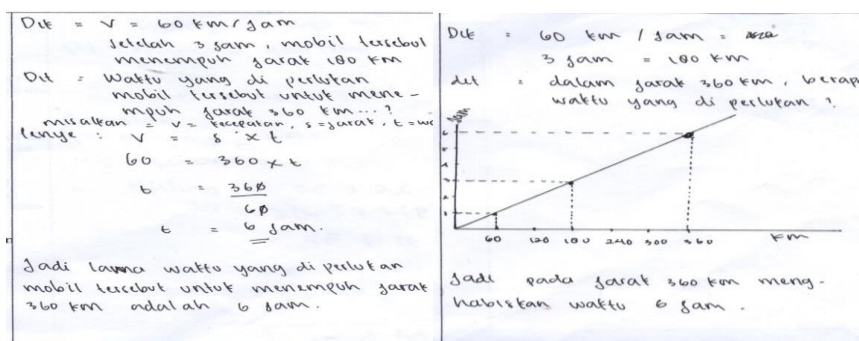 Dik = V = 60 km/jam
setelah 3 jam, mobil tersebut
menempuh jarak 180 km
Dit = Waktu yang di perlukan
mobil tersebut untuk mene-
mpuh jarak 360 km...?
misalkan = V = kecepatan, s = jarak, t = wa
Penye : V = s x t
60 = 360 x t
t = 360
60
t = 6 jam.
Jadi lama waktu yang di perlukan
mobil tersebut untuk menempuh jarak
360 km adalah 6 jam.
Dik = 60 km / jam =
3 jam = 180 km
dit = dalam jarak 360 km, berap
waktu yang di perlukan ?
jam
6
5
4
3
2
1
60 120 180 240 300 360 km
Jadi pada jarak 360 km meng-
habiskan waktu 6 jam.